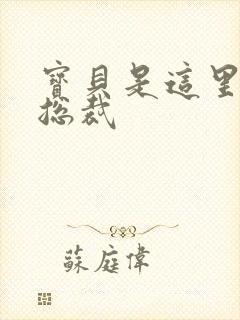 寶貝是這里
總裁
蘇庭偉